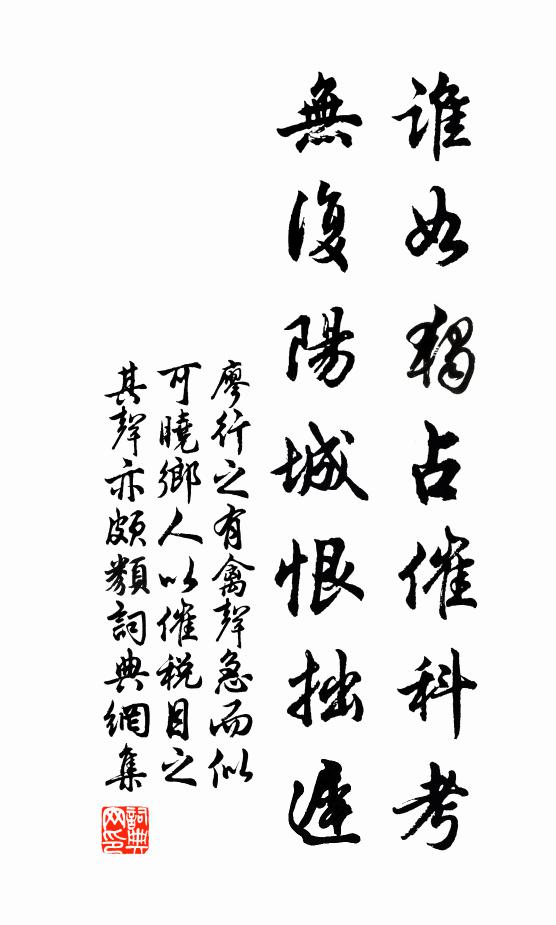 誰如獨占催科考
無復陽城恨拙遲
廖行之有禽聲急而似
可曉鄉人以催税目之
其聲亦頗類詞典網集
詞典网印